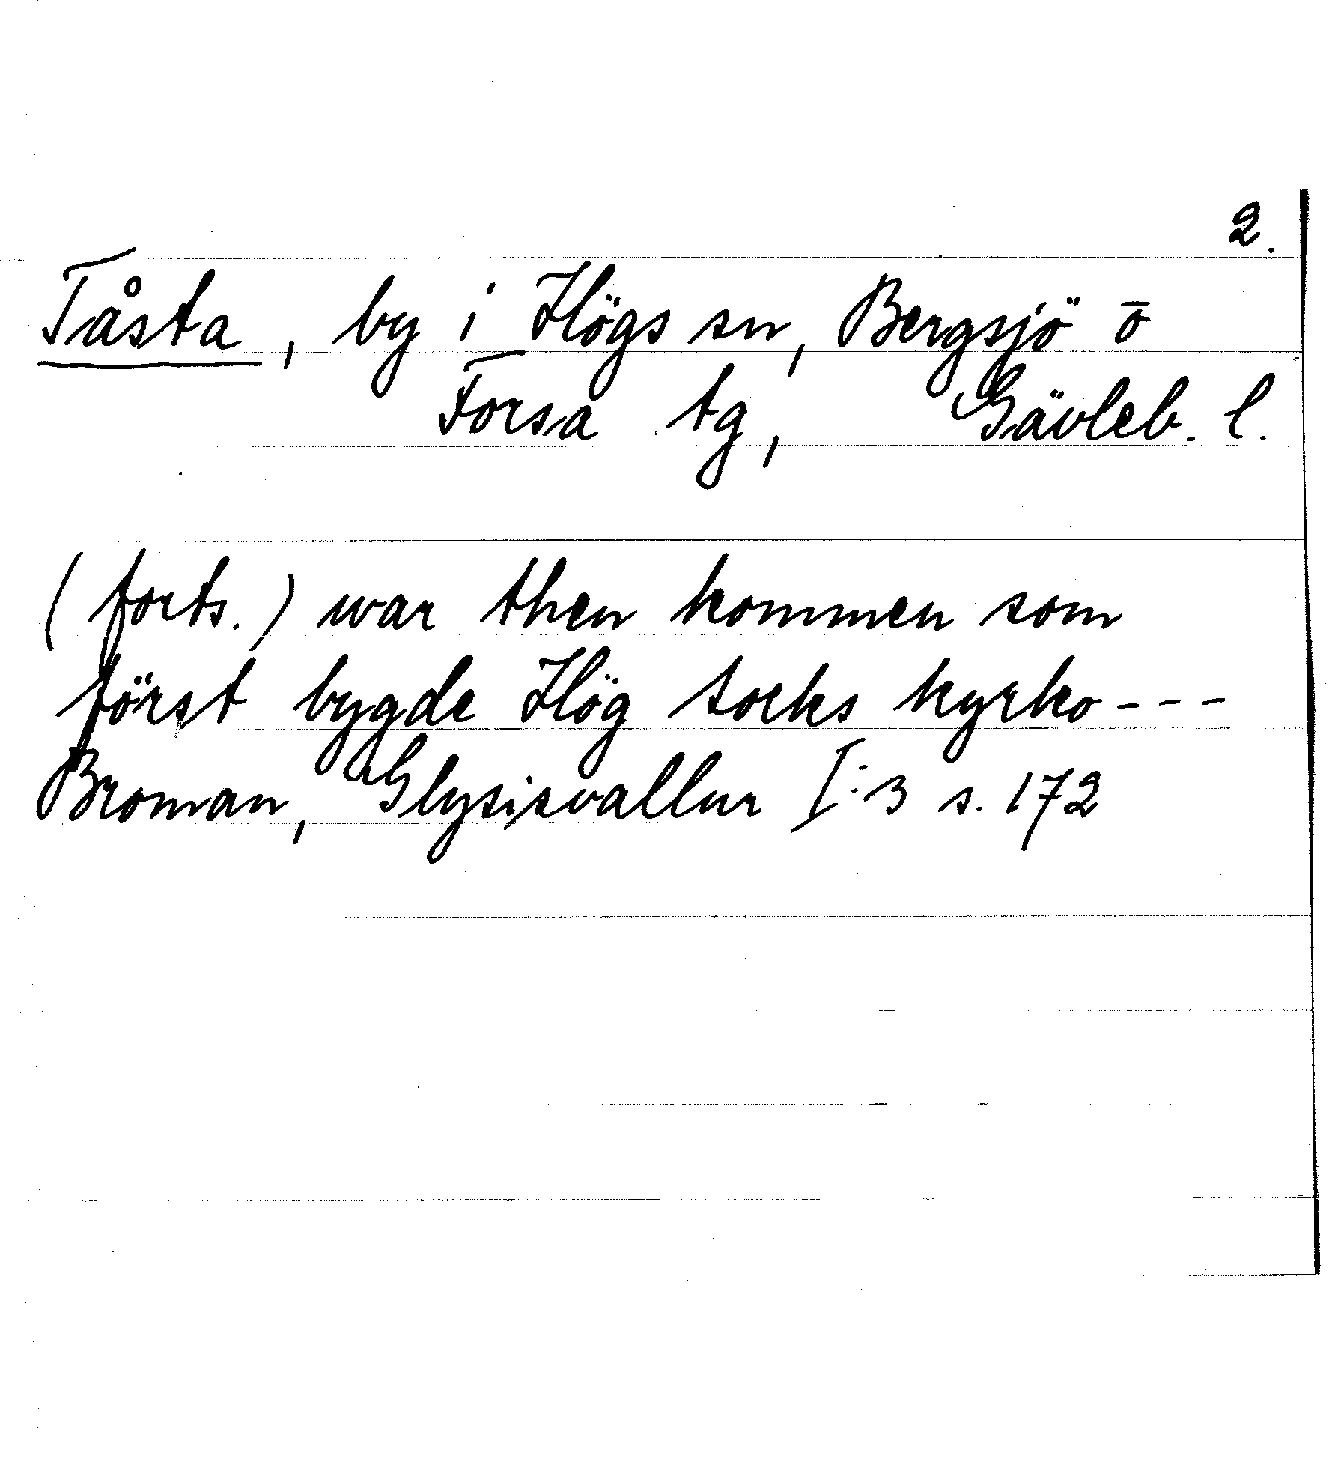 2.
Tåsta, by i Högs sn, Bergsjö o
Forsa tg, Gävleb. l.
(forts.) war then kommen som
först bygde Hög socks kyrko---
Broman, Glysisvallur I:3 s. 172